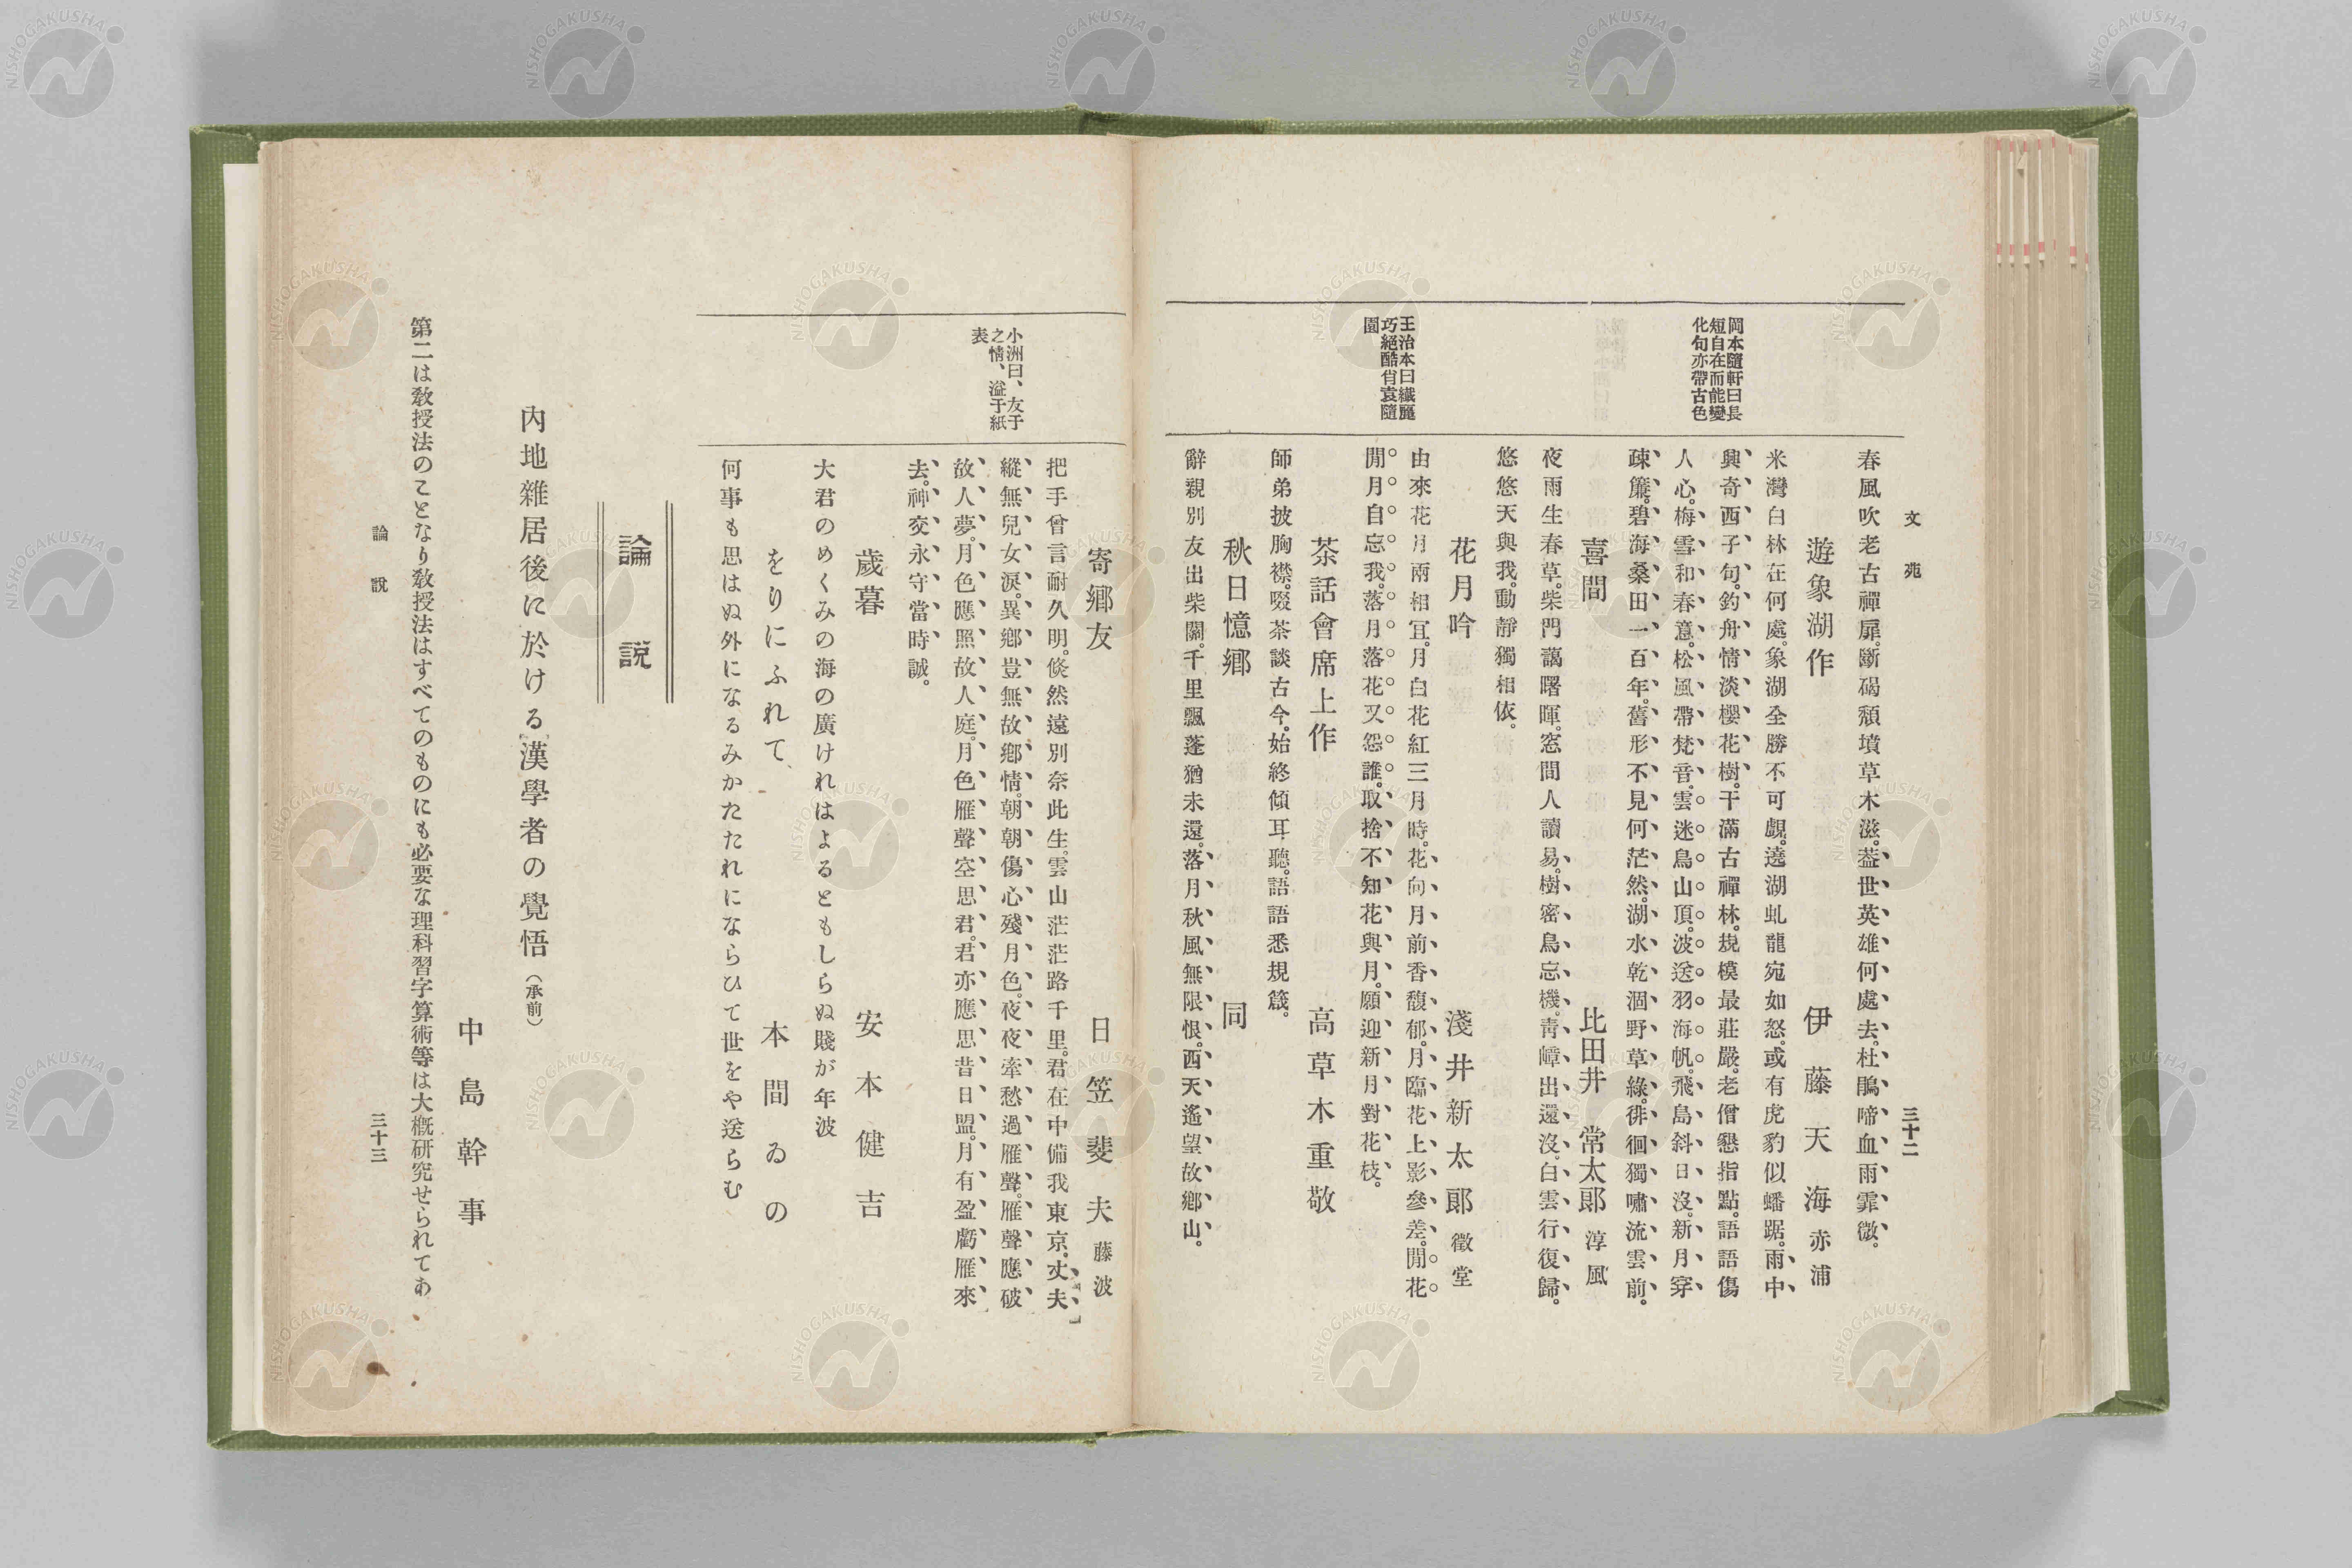 文苑
三十二
春風吹老古禪扉。斷碣頽墳草木滋。葢世英雄何處去。杜鵑啼血雨霏微。
遊象湖作
伊藤天海 赤浦
米灣白林在何處。象湖全勝不可覷。遶湖虬龍宛如怒。或有虎豹似蟠踞。雨中
興奇西子句。釣舟情淡櫻花樹。干滿古禪林。規模最莊嚴。老僧懇指點。語語傷
人心。梅雪和春意。松風帶梵音。雲迷鳥山頂。波送羽海帆。飛島斜日沒。新月穿
疎簾。碧海桑田一百年。舊形不見何茫然。湖水乾涸野草綠。徘徊獨嘯流雲前。
岡本隨軒曰長
短自在而能變
化句亦帶古色
喜間
比田井常太郞 淳風
夜雨生春草。柴門靄曙暉。窓間人讀易。樹密鳥忘機。靑嶂出還沒。白雲行復歸。
悠悠天與我。動靜獨相依。
花月吟
淺井新太郞 徵堂
由來花月兩相宜。月白花紅三月時。花向月前香馥郁。月臨花上影參差。閒花
閒月自忘我。落月落花又怨誰。取捨不知花與月。願迎新月對花枝。
王治本曰纖麗
巧絕酷肖袁隨
園
茶話會席上作
高草木重敬
師弟披胸襟。啜茶談古今。始終傾耳聽。語語悉規箴。
秋日憶鄉
同
辭親別友出柴關。千里飄蓬猶未還。落月秋風無限恨。西天遙望故鄉山。
寄鄉友
日笠斐夫 藤波
把手曾言耐久明。倐然遠別奈此生。雲山茫茫路千里。君在中備我東京。丈夫
縱無兒女淚。異鄉豈無故鄉情。朝朝傷心殘月色。夜夜牽愁過雁聲。雁聲應破
故人夢。月色應照故人庭。月色雁聲空思君。君亦應思昔日盟。月有盈虧雁來
去。神交永守當時誠。
小洲曰、友于
之情、溢于紙
表
歲暮
安本健吉
大君のめくみの海の廣けれはよるともしらぬ賤が年波
をりにふれて
本間ゐの
何事も思はぬ外になるみかたたれにならひて世をや送らむ
論說
內地雜居後に於ける漢學者の覺悟（承前）
中島幹事
第二は敎授法のことなり敎授法はすべてのものにも必要な理科習字算術等は大槪研究せられてあ
論說
三十三